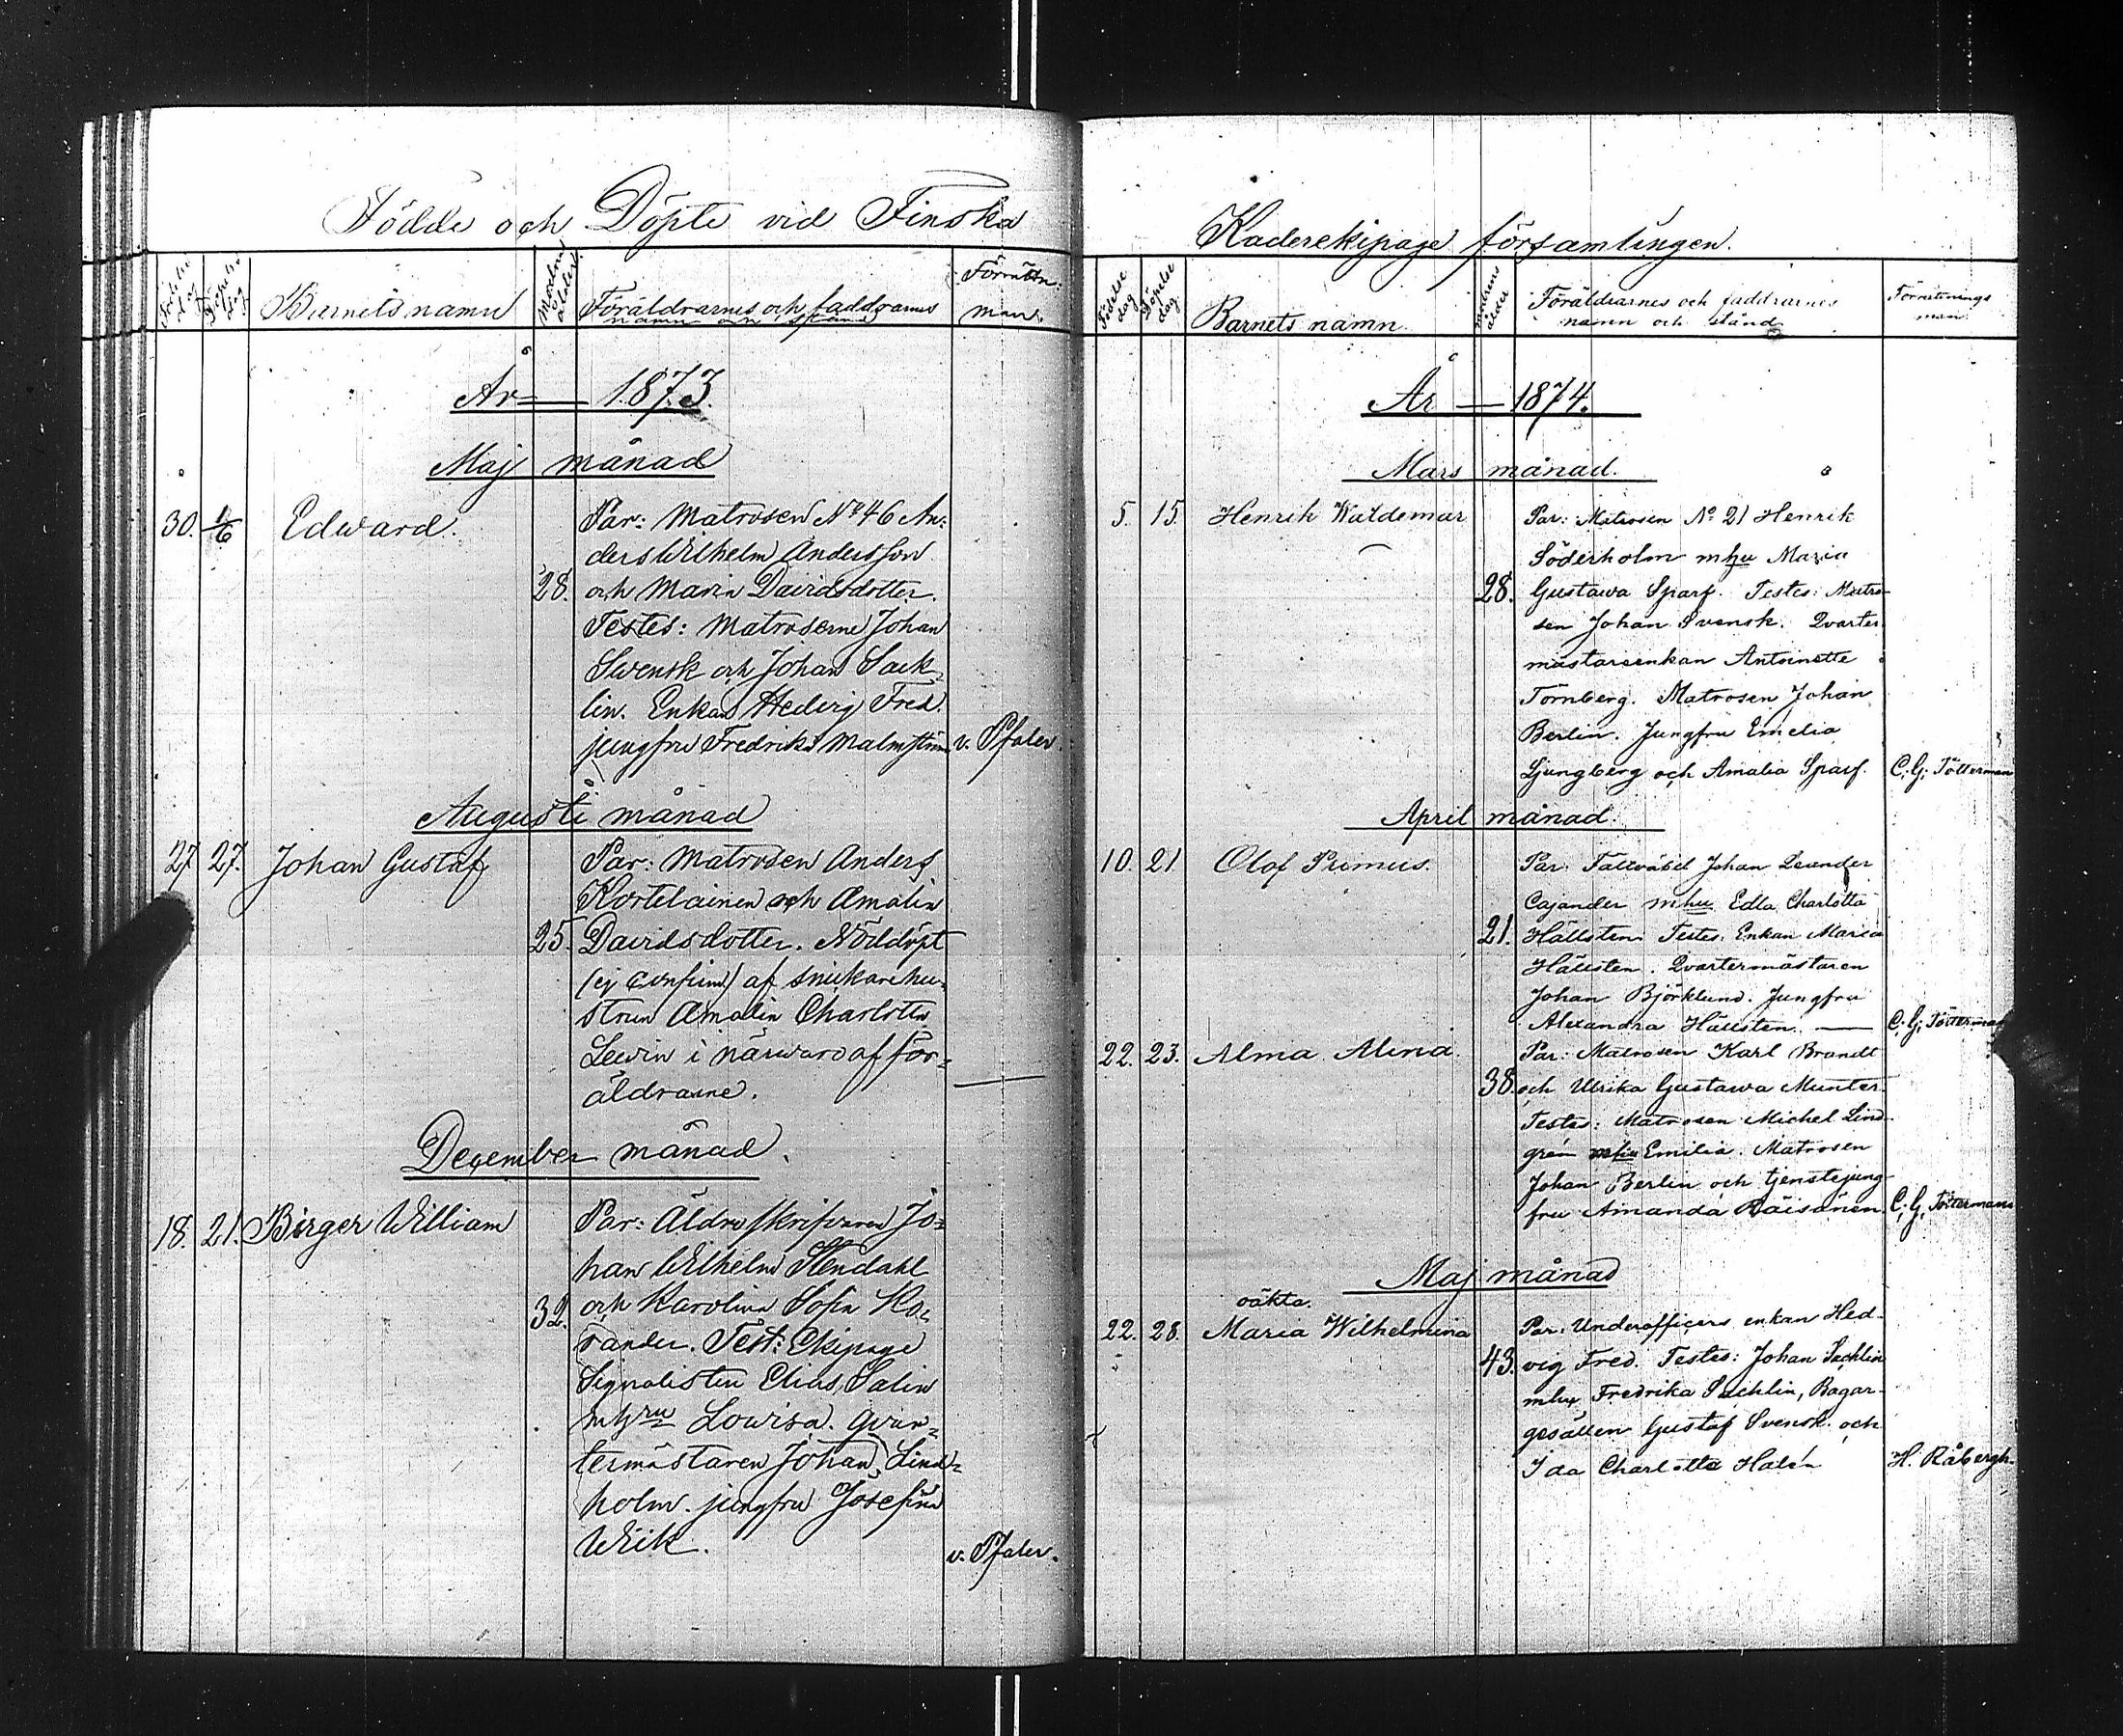 Födde och Döpte vid Finska
Födelse dag
Döpelse dag
Barnets namn
Modrens ålder
Föräldrarnes och faddrarnes
namn och stånd
Förrättn:
man.
År — 1873.
Maj månad
30. 1/6 Edward. Par: Matrosen No 46 An:
ders Wilhelm Andersson
28. och Maria Davidsdotter.
Testes: Matroserne Johan
Swensk och Johan Sack-
lin. Enkan Hedvig Fred.
jungfru Fredrika Malmström v. Pfaler.
Augusti månad
27. 27. Johan Gustaf Par: Matrosen Anders
Kortelainen och Amalia
25. Davidsdotter. Nöddöpt
(ej confirm) af snickarehu-
strun Amalia Charlotta
Lewin i närwaro af för-
äldrarne.
December månad.
18. 21. Birger William Par: Äldre skrifvaren Jo-
han Wilhelm Stendahl
32. och Karolina Sofia Ko-
rander. Test: Ekipage
Signalisten Elias Salin
mhru Lowisa. Qvar-
termästaren Johan Lind-
holm. jungfru Josefina
Wiik.
v. Pfaler.
Kaderekipage församlingen.
Födelse dag
Döpelse dag
Barnets namn.
modrens ålder
Föräldrarnes och faddrarnes
namn och stånd
Förrättnings
man.
År — 1874.
Mars månad.
5. 15. Henrik Waldemar Par: Matrosen No 21 Henrik
Söderholm mhu Maria
28. Gustawa Sparf. Testes: Matro-
sen Johan Svensk. Qvarter
mästareenkan Antoinette
Törnberg. Matrosen Johan
Berlin. Jungfru Emelia
Ljungberg och Amalia Sparf. C. G. Tötterman
April månad.
10. 21 Olof Primus. Par: Fältväbel Johan Leander
Cajander mhu Edla Charlotta
21. Hällsten Testes: Enkan Maria
Hällsten. Qvartermästaren
Johan Björklund. Jungfru
Alexandra Hällsten. — C. G. Tötterman
22. 23. Alma Alina. Par: Matrosen Karl Brandt
38. och Ulrika Gustawa Munter.
Testes: Matrosen Michel Lind-
grén mhu Emilia. Matrosen
Johan Berlin och tjenstejung-
fru Amanda Räisänen. C. G. Tötterman
Maj månad
oäkta.
22. 28. Maria Wilhelmina Par: Underofficers enkan Hed-
43. vig Fred. Testes: Johan Sachlin
mhu Fredrika Sachlin, Bagar-
gesällen Gustaf Svensk och
Ida Charlotta Halén H. Råbergh.